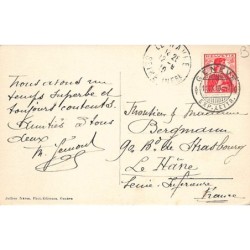 Nous avons un
temps superbe et
toujours contents.
Amitiés à tous
deux
Monsieur & Madame
Bergmann
90 Bd de Strasbourg
Le Hâvre
Seine Inférieure
France
GENÈVE
Jullien frères, Phot.-Editeurs, Genève